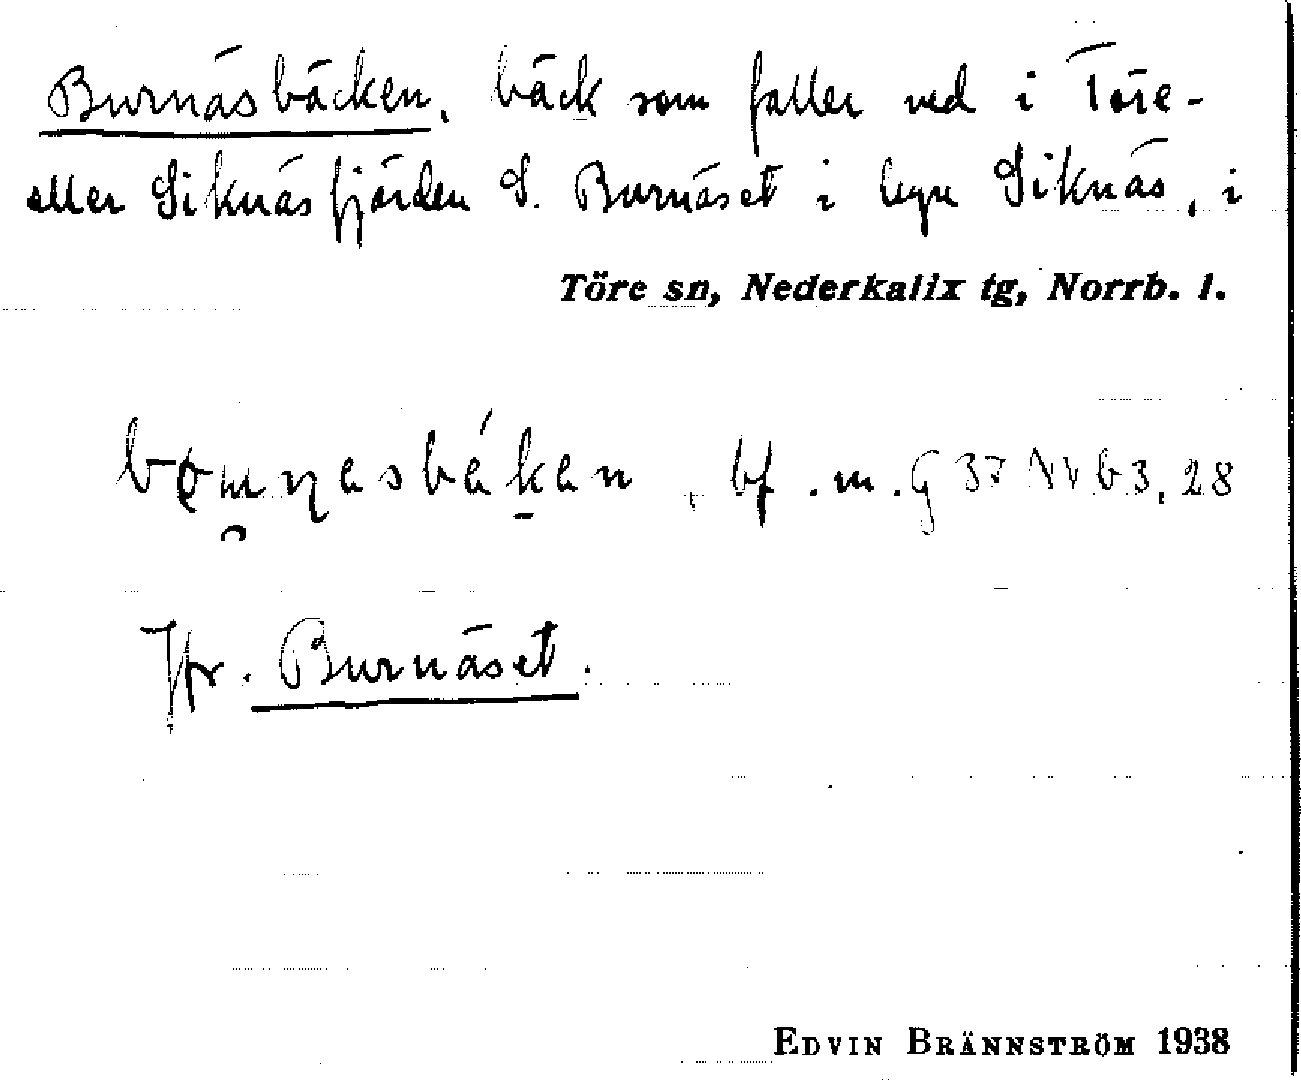 Burnäsbäcken, bäck som faller ned i Töre-
eller Siknäsfjärden S. Burnäset i byn Siknäs, i
Töre sn, Nederkalix tg, Norrb. l.
bf. m. G 37 NV b 3, 28
Jfr. Burnäset.
EDVIN BRÄNNSTRÖM 1938